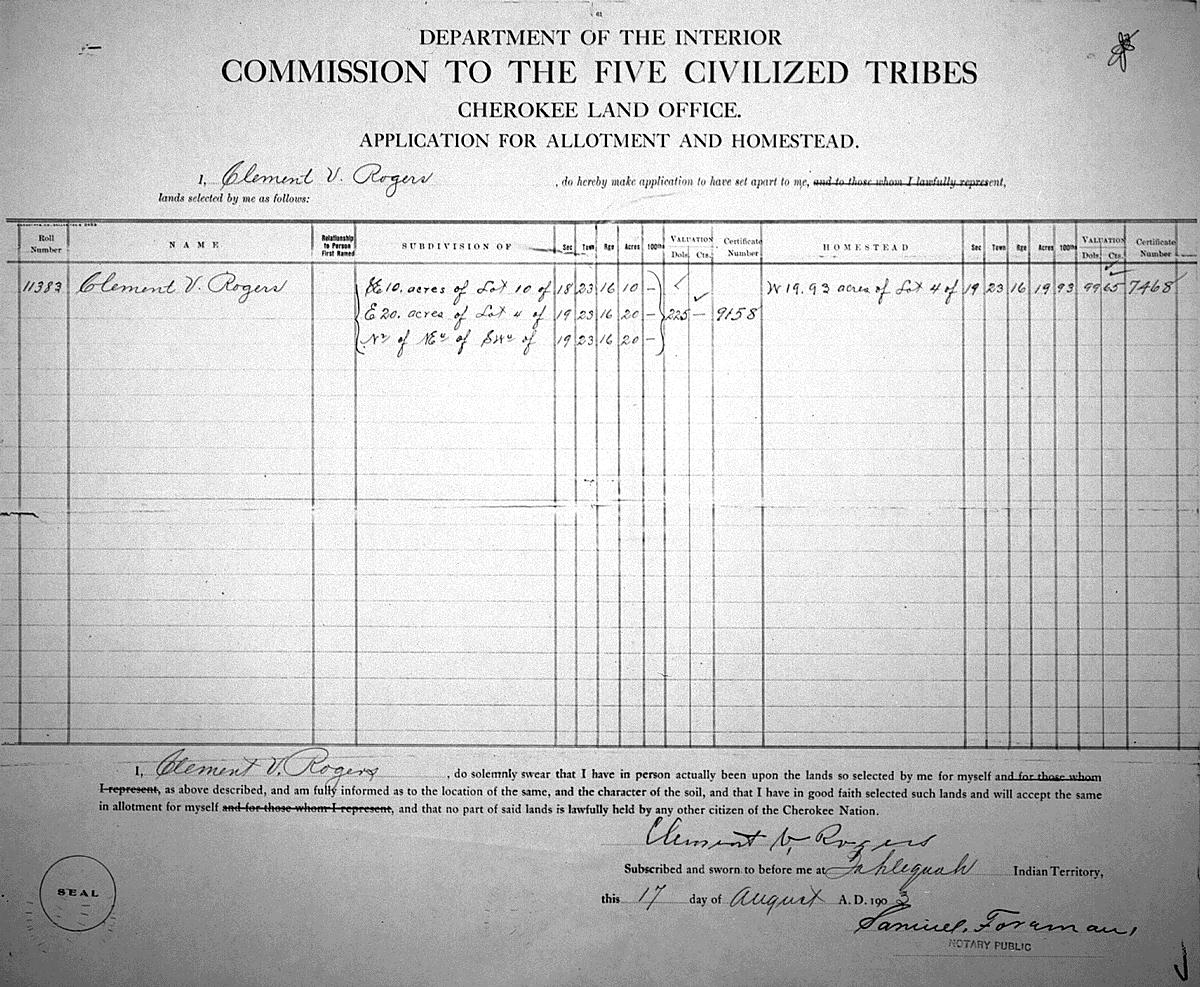 61
DEPARTMENT OF THE INTERIOR
COMMISSION TO THE FIVE CIVILIZED TRIBES
CHEROKEE LAND OFFICE.
APPLICATION FOR ALLOTMENT AND HOMESTEAD.
I, Clement V. Rogers, do hereby make application to have set apart to me, and to those whom I lawfully represent,
lands selected by me as follows:
Roll Number NAME Relationship to Person First Named SUBDIVISION OF Sec Town Rge Acres 100ths VALUATION Dols. Cts. Certificate Number HOMESTEAD Sec Town Rge Acres 100ths VALUATION Dols. Cts. Certificate Number
11383 Clement V. Rogers E 10. acres of Lot 10 of 18 23 16 10 — W 19.93 acres of Lot 4 of 19 23 16 19 93 99 65 7468
E 20. acres of Lot 4 of 19 23 16 20 — 225 — 9158
of of of 19 23 16 20 —
I, Clement V. Rogers, do solemnly swear that I have in person actually been upon the lands so selected by me for myself and for those whom
I represent, as above described, and am fully informed as to the location of the same, and the character of the soil, and that I have in good faith selected such lands and will accept the same
in allotment for myself and for those whom I represent, and that no part of said lands is lawfully held by any other citizen of the Cherokee Nation.
Clement V, Rogers
Subscribed and sworn to before me at Tahlequah Indian Territory,
this 17 day of August A. D. 1903
SEAL
Samuel. Foreman,
NOTARY PUBLIC